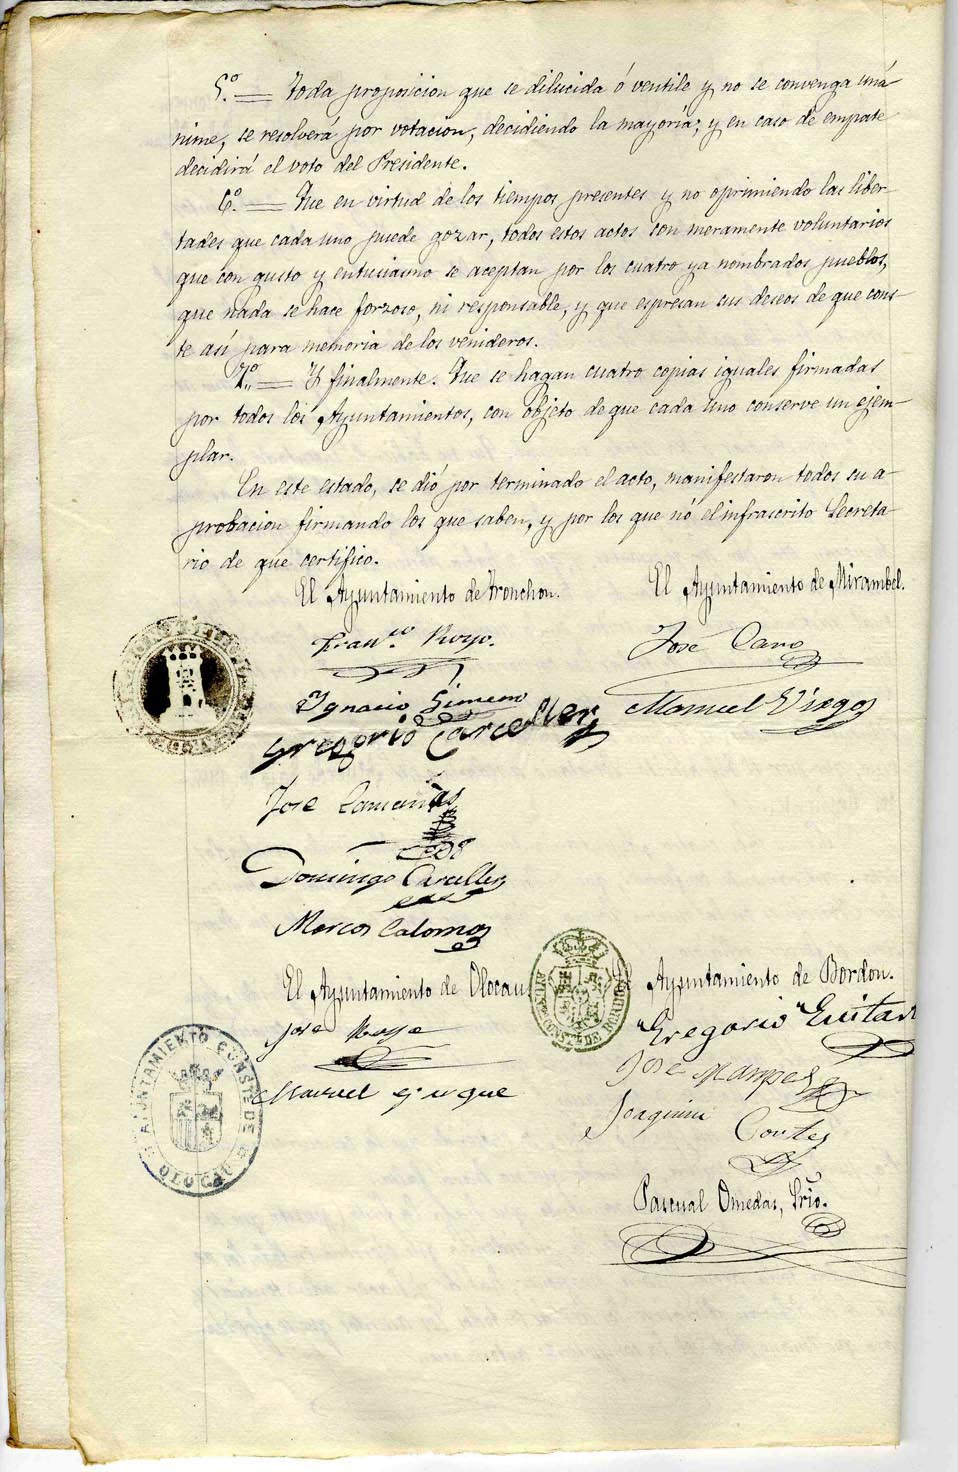 5.º = Toda proposicion que se dilucida ó ventile y no se convenga uná-
nime, se resolverá por votacion, decidiendo la mayoría; y en caso de empate
decidirá el voto del Presidente.
6.º = Que en virtud de los tiempos presentes y no oprimiendo las liber-
tades que cada uno puede gozar, todos estos actos son meramente voluntarios
que con gusto y entusiasmo se aceptan por los cuatro ya nombrados pueblos,
que nada se hace forzoso, ni responsable, y que espresan sus deseos de que cons-
te así para memoria de los venideros.
7.º = Y finalmente. Que se hagan cuatro copias iguales firmadas
por todos los Ayuntamientos, con objeto de que cada uno conserve un ejem-
plar.
En este estado, se dió por terminado el acto, manifestaron todos su a-
probacion firmando los que saben, y por los que nó el infrascrito Secreta-
rio de que certifico.
El Ayuntamiento de Tronchon.
Fran.co Royo.
Ignacio Gimeno
Gregorio Carceller
José Camañas
Domingo Carceller
Marcos Calomo
El Ayuntamiento de Mirambel.
José Cano
Manuel
El Ayuntamiento de Olocau
José Royo
Manuel
AYUNTAMIENTO CONSTE DE
OLOCAU
El Ayuntamiento de Bordon.
Gregorio Guitart
José
Joaquin
Cortes
Pascual Omedas, Srio.
DE BORDON